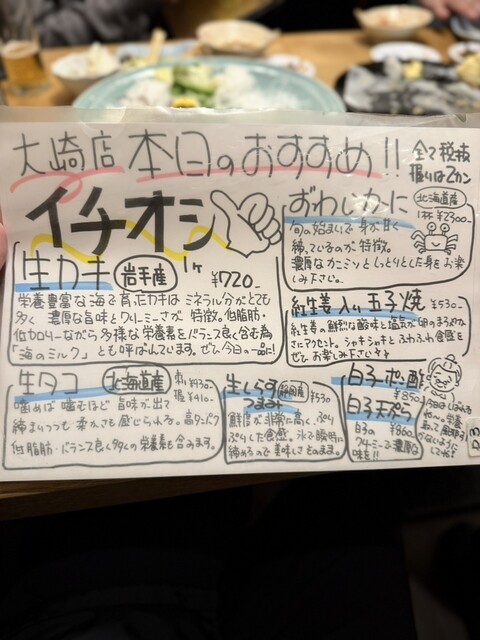 大崎店 本日のおすすめ!!
全て税抜
握りは2カン
イチオシ
生カキ 岩手産 1ヶ ¥720-
栄養豊富な海で育ったカキは ミネラル分がとても
多く 濃厚な旨味とクリーミーさが 特徴。低脂肪・
低カロリーながら多様な栄養素をバランス良く含む為
「海のミルク」とも呼ばれています。ぜひ、今日の一品に!
ずわいかに 北海道産 1杯 ¥2300-
旬の始まりで身が甘く
締まっているのが特徴。
濃厚なカニミソとしっとりとした身をお楽
しみ下さい。
紅生姜入り玉子焼 ¥530-
紅生姜の鮮烈な酸味と塩気が卵のまろやか
さにアクセント。シャキシャキとふわふわ食感を
ぜひお楽しみ下さい
生タコ 北海道産 刺 ¥930- 握 ¥410-
噛めば噛むほど 旨味が出て
締まりつつも柔かさも感じられる。高タンパク
低脂肪・バランス良く多くの栄養素を含みます。
生しらす 静岡産
つまみ ¥530
鮮度が非常に高く、ぷり
ぷりした食感。氷で瞬時に
締めるので美味しさそのまま。
白子ポン酢 ¥850
白子天ぷら ¥860-
白子の
クリーミーで濃厚な
味を!!
今日は